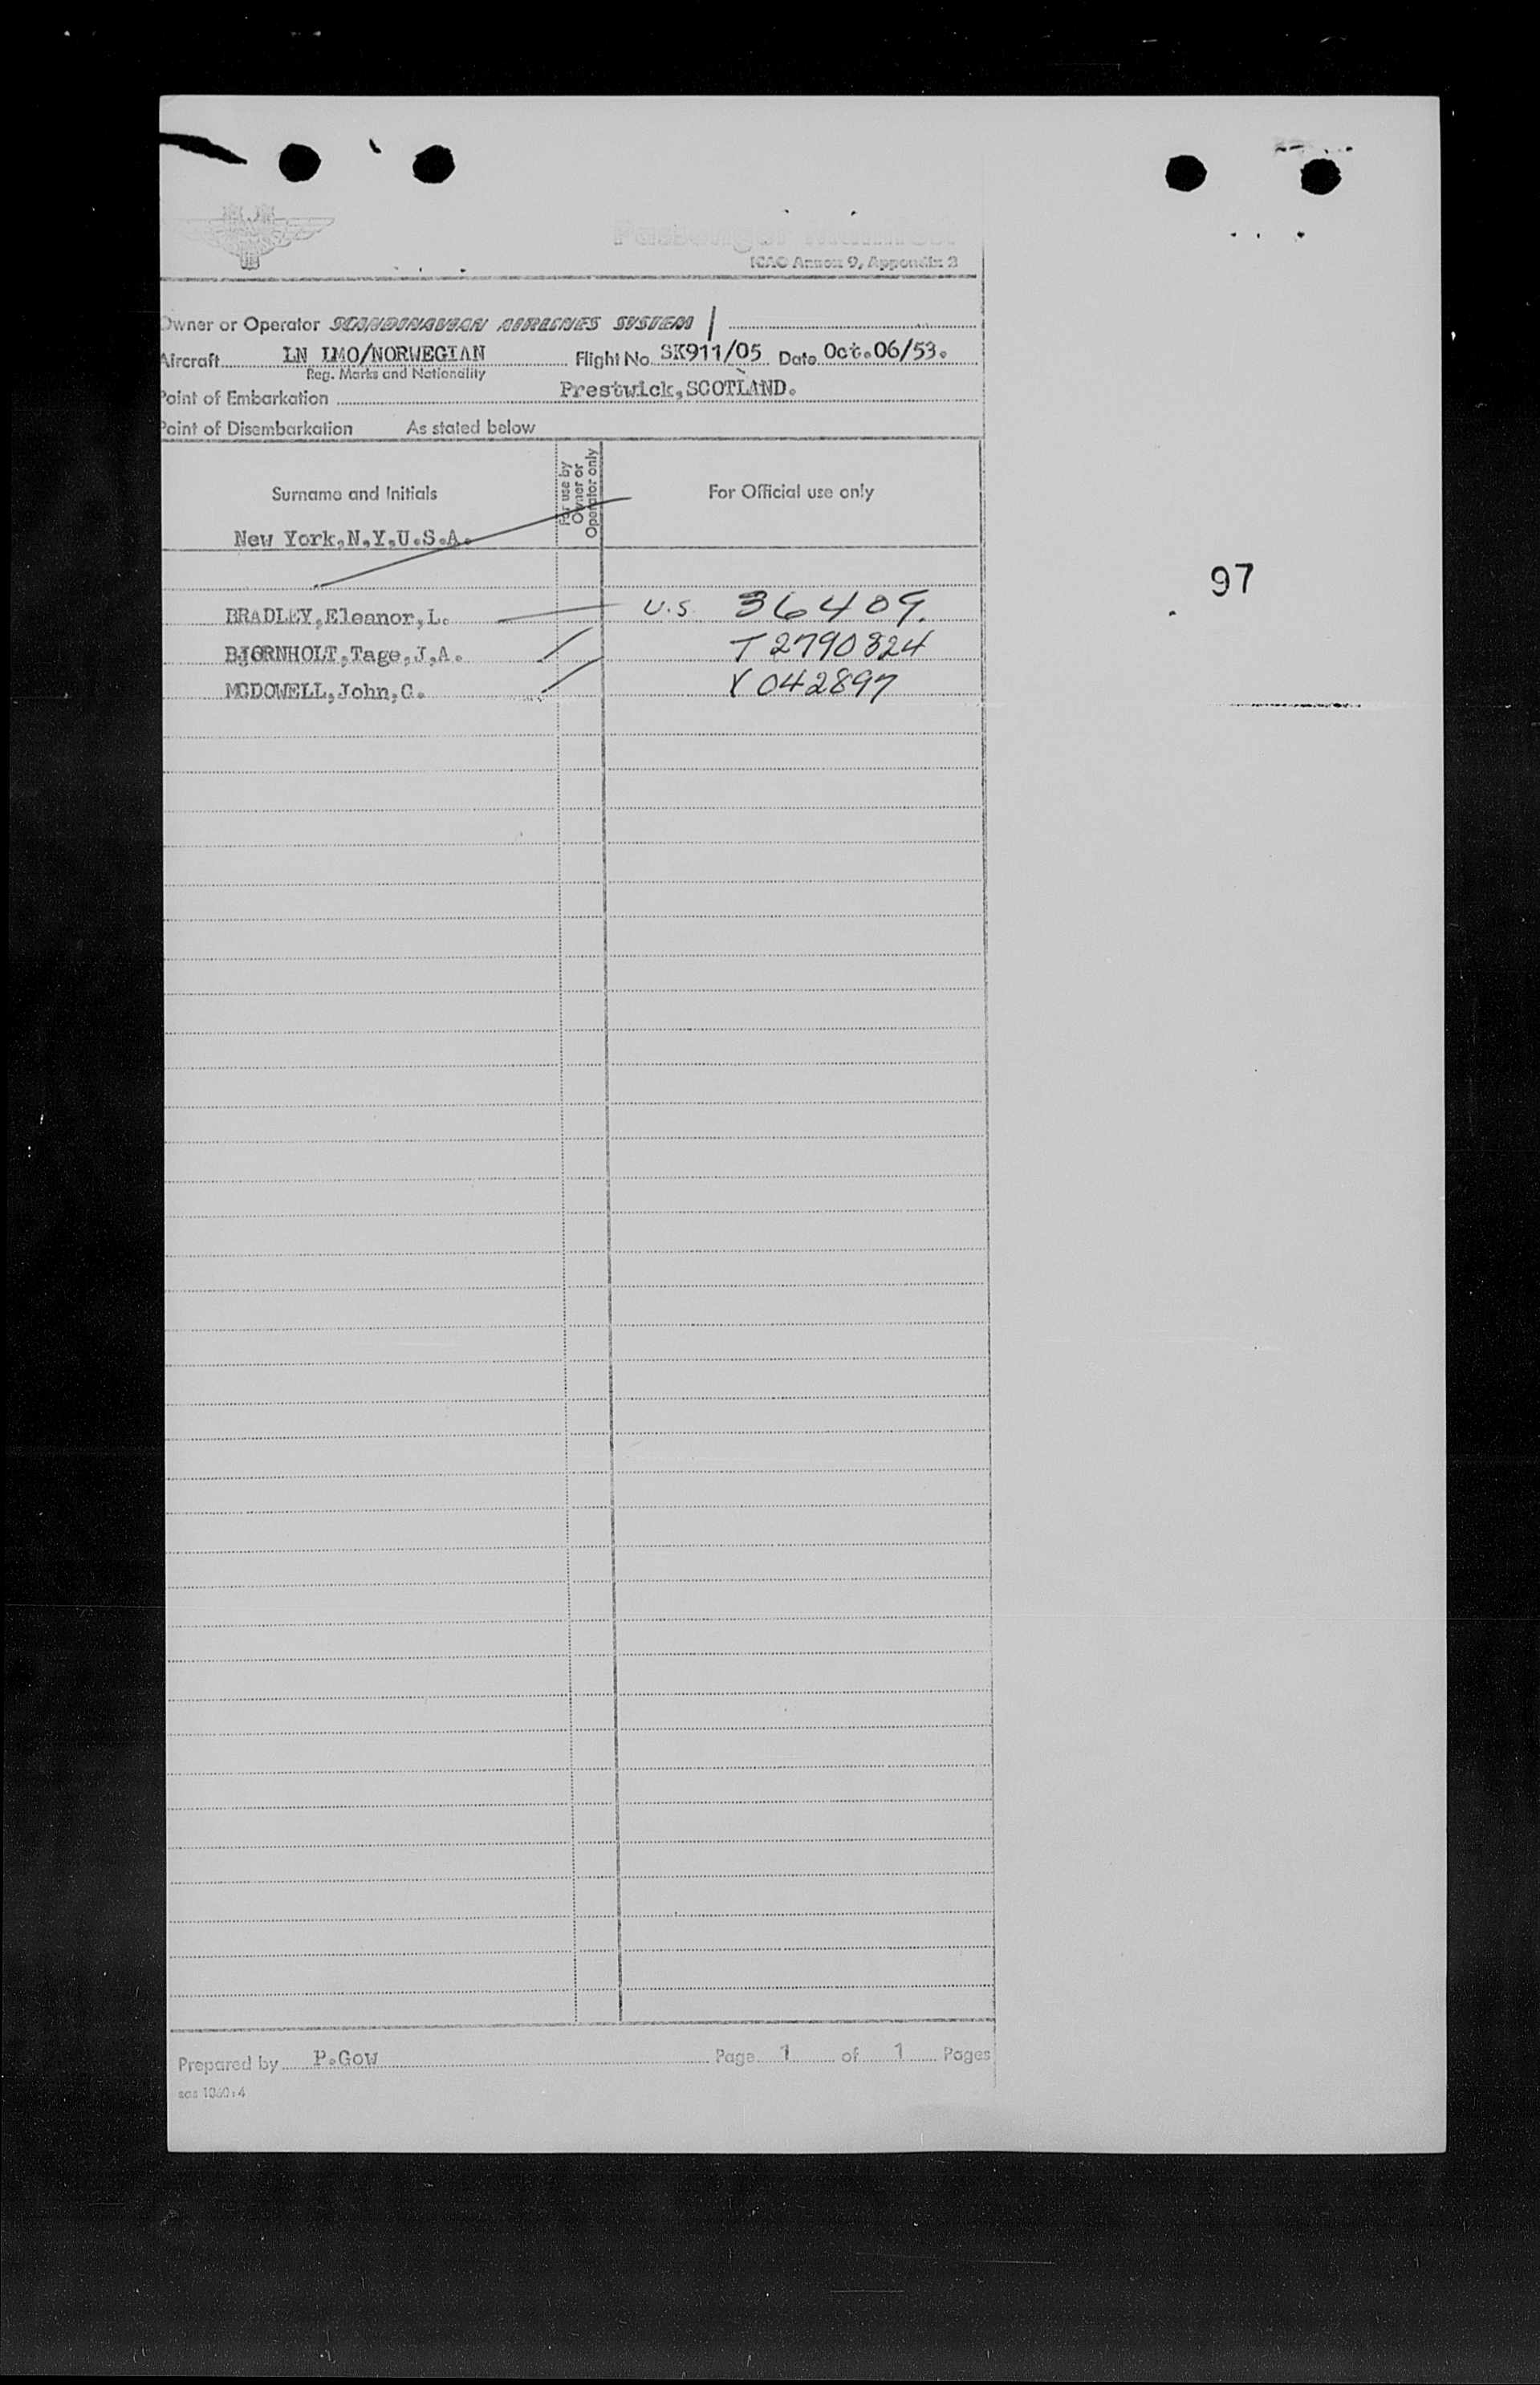 Passenger Manifest
ICAO Annex 9, Appendix 3
Owner or Operator SCANDINAVIAN AIRLINES SYSTEM
Aircraft LN LMO/NORWEGIAN Flight No. SK911/05 Date Oct.06/53.
Reg. Marks and Nationality
Point of Embarkation Prestwick,SCOTLAND.
Point of Disembarkation As stated below
Surname and Initials For use by Owner or Operator only For Official use only
New York,N,Y,U.S.A.
97
BRADLEY,Eleanor,L. U.S. 36409.
BJORNHOLT,Tage,J,A. T2790824
MCDOWELL,John,C. Y042897
Prepared by P.Gow Page 1 of 1 Pages